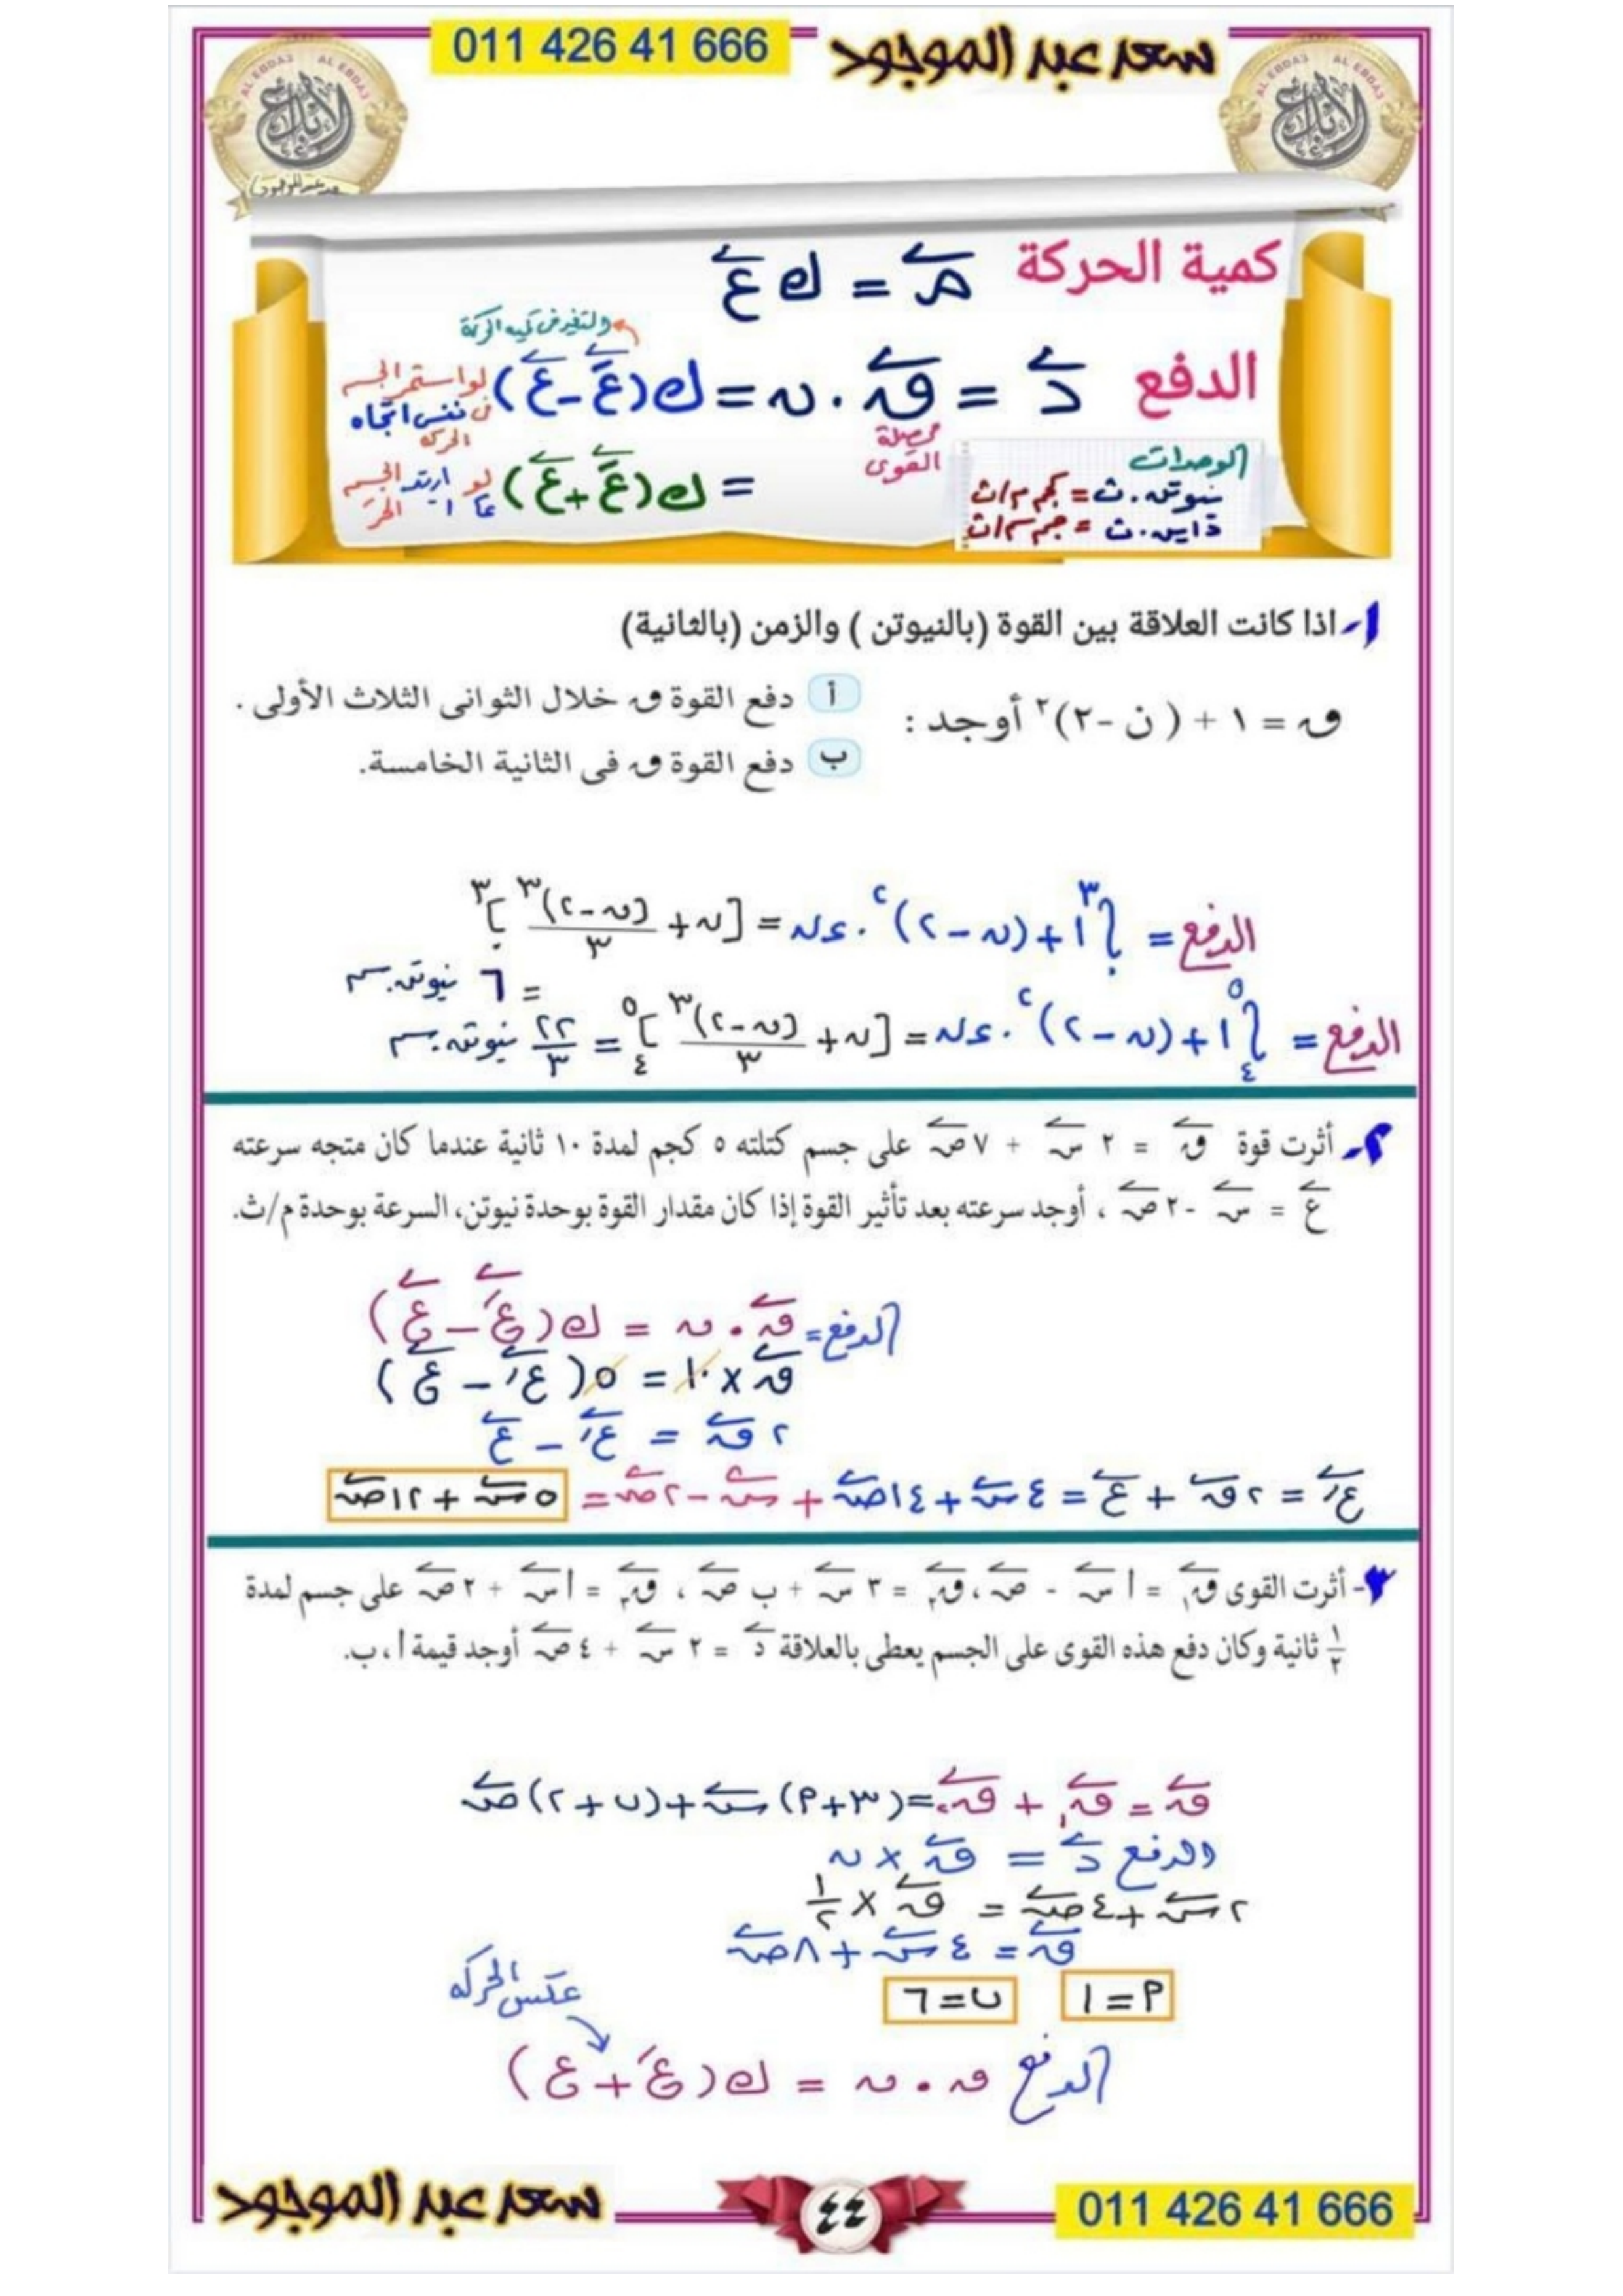 011 426 41 666
سعد عبد الموجود
AL EBDA3 AL EBDA3
الإبداع
AL EBDA3 AL EBDA3
الإبداع
كمية الحركة م = ك ع
والتغير فى كميه الحركة
الدفع د = ق . ن = ك (عَ - ع) لو استمر الجسم فى نفس اتجاه الحركه
محصلة القوى
= ك (عَ + ع) لو ارتد الجسم
الوحدات
نيوتن . ث = كجم م/ث
داين . ث = جم سم/ث
١- اذا كانت العلاقة بين القوة (بالنيوتن ) والزمن (بالثانية)
ق = ١ + ( ن -٢)٢ أوجد :
أ دفع القوة ق خلال الثوانى الثلاث الأولى .
ب دفع القوة ق فى الثانية الخامسة.
الدفع = ∫٠^٣ ١ + (ن - ٢)٢ . ءن = [ن + (ن - ٢)٣/٣]٠^٣
= ٦ نيوتن.ث
الدفع = ∫٤^٥ ١ + (ن - ٢)٢ . ءن = [ن + (ن - ٢)٣/٣]٤^٥ = ٢٢/٣ نيوتن.ث
٢- أثرت قوة ق = ٢ س + ٧ ص على جسم كتلته ٥ كجم لمدة ١٠ ثانية عندما كان متجه سرعته
ع = س - ٢ ص ، أوجد سرعته بعد تأثير القوة إذا كان مقدار القوة بوحدة نيوتن، السرعة بوحدة م/ث.
الدفع = ق . ن = ك (عَ - ع)
ق × ١٠ = ٥ (عَ - ع)
٢ ق = عَ - ع
عَ = ٢ ق + ع = ٤ س + ١٤ ص + س - ٢ ص = ٥ س + ١٢ ص
٣- أثرت القوى ق١ = أ س - ص ، ق٢ = ٣ س + ب ص ، ق٣ = أ س + ٢ ص على جسم لمدة
١/٢ ثانية وكان دفع هذه القوى على الجسم يعطى بالعلاقة د = ٢ س + ٤ ص أوجد قيمة أ ، ب.
ق = ق١ + ق٢ = (٣ + أ) س + (ب + ٢) ص
الدفع د = ق × ن
٢ س + ٤ ص = ق × ١/٢
ق = ٤ س + ٨ ص
أ = ١ ب = ٦
عكس الحركه
الدفع ق . ن = ك (عَ + ع)
سعد عبد الموجود
٤٤
011 426 41 666